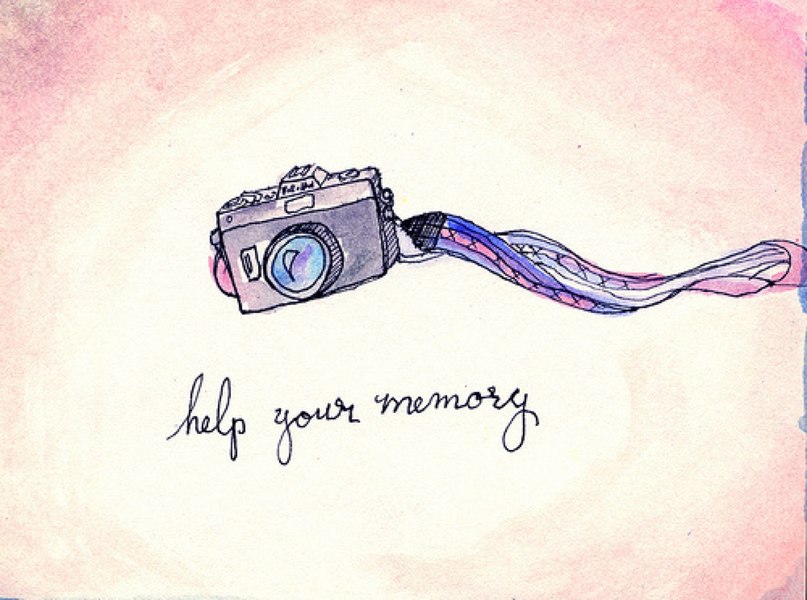 help your memory